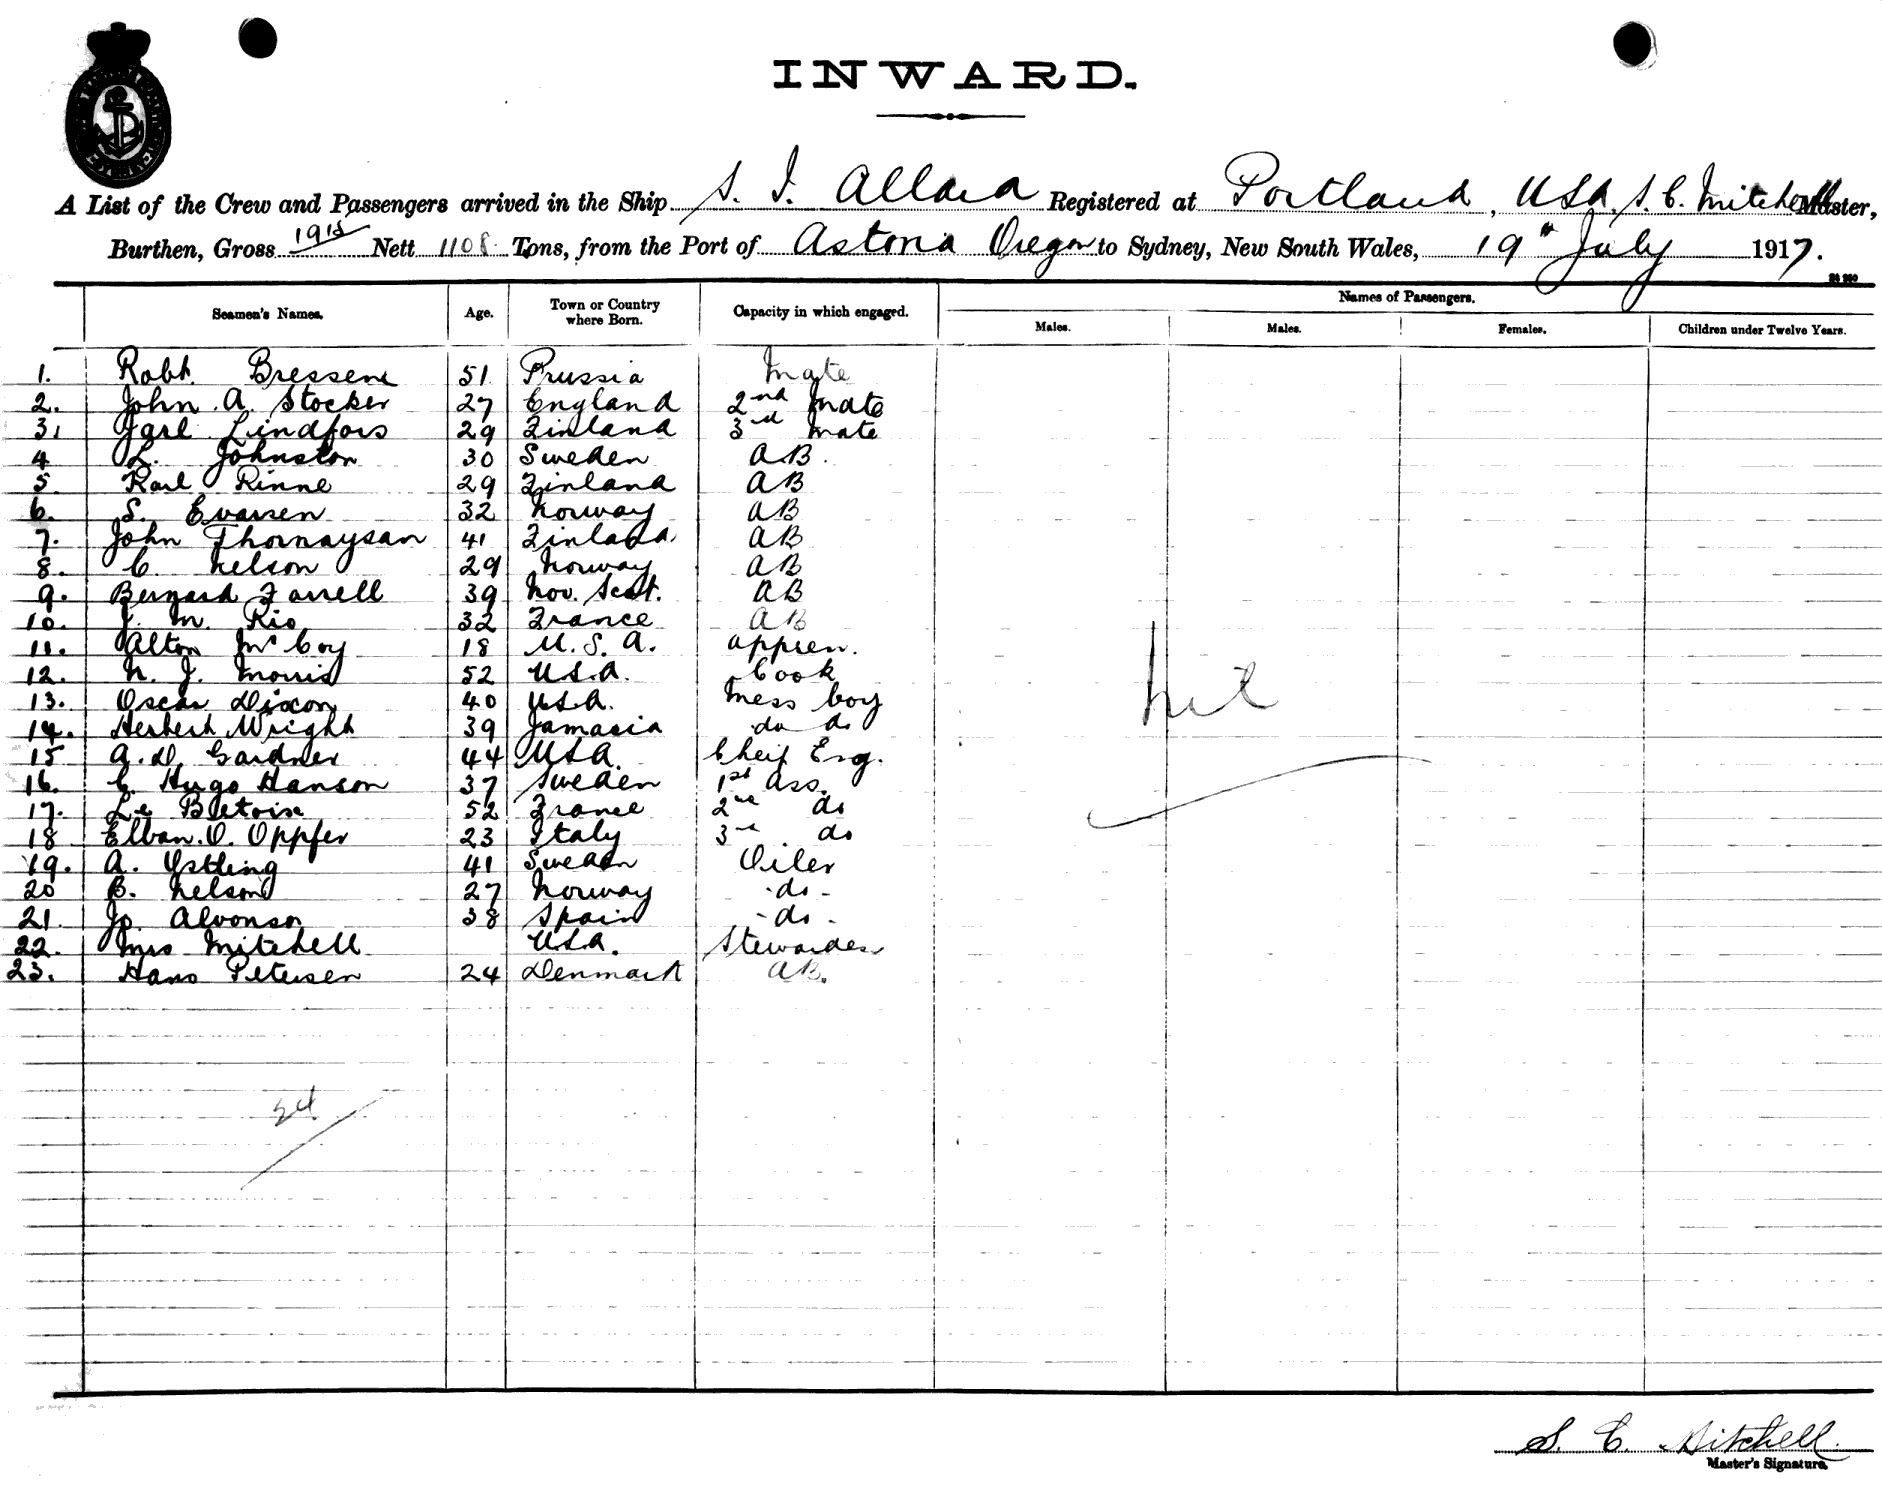 INWARD.
A List of the Crew and Passengers arrived in the Ship S. I. Allard Registered at Portland, USA. S. C. Mitchell Master,
Burthen, Gross 1918 Nett 1108 Tons, from the Port of Astoria Oregon to Sydney, New South Wales, 19th July 1917.
Names of Passengers.
Seamen's Names. Age. Town or Country where Born. Capacity in which engaged. Males. Males. Females. Children under Twelve Years.
1. Robt. Bressem 51 Prussia Mate
2. John. A. Stocker 27 England 2nd Mate
3. Jarl Lindfors 29 Finland 3rd Mate
4 L. Johnston 30 Sweden A.B.
5. Karl Rinne 29 Finland AB
6. S. Evansen 32 Norway AB
7. John Thornaysan 41 Finland AB
8. C. Nelson 29 Norway AB
9. Bernard Farrell 39 Nov. Scot. AB
10. J. M. Rio 32 France AB
11. Alton McCoy 18 U.S.A. appren.
12. N. J. Morris 52 U.S.A. Cook
13. Oscar Dixon 40 U.S.A. Mess boy
14. Herbert Wright 39 Jamacia do do
15 A. D. Gardner 44 USA. Cheif Eng.
16. C. Hugo Hanson 37 Sweden 1st ass.
17. Le Bretoise 52 France 2nd do
18 Elban. O. Oppfer 23 Italy 3rd do
19. A. Ostling 41 Sweden Oiler
20 B. Nelson 27 Norway -do-
21. Jo. Alvonso 38 Spain -do-
22. Mrs Mitchell U.S.A. Stewardess
23. Hans Petersen 24 Denmark AB.
nil
24
S. C. Mitchell
Master's Signature.